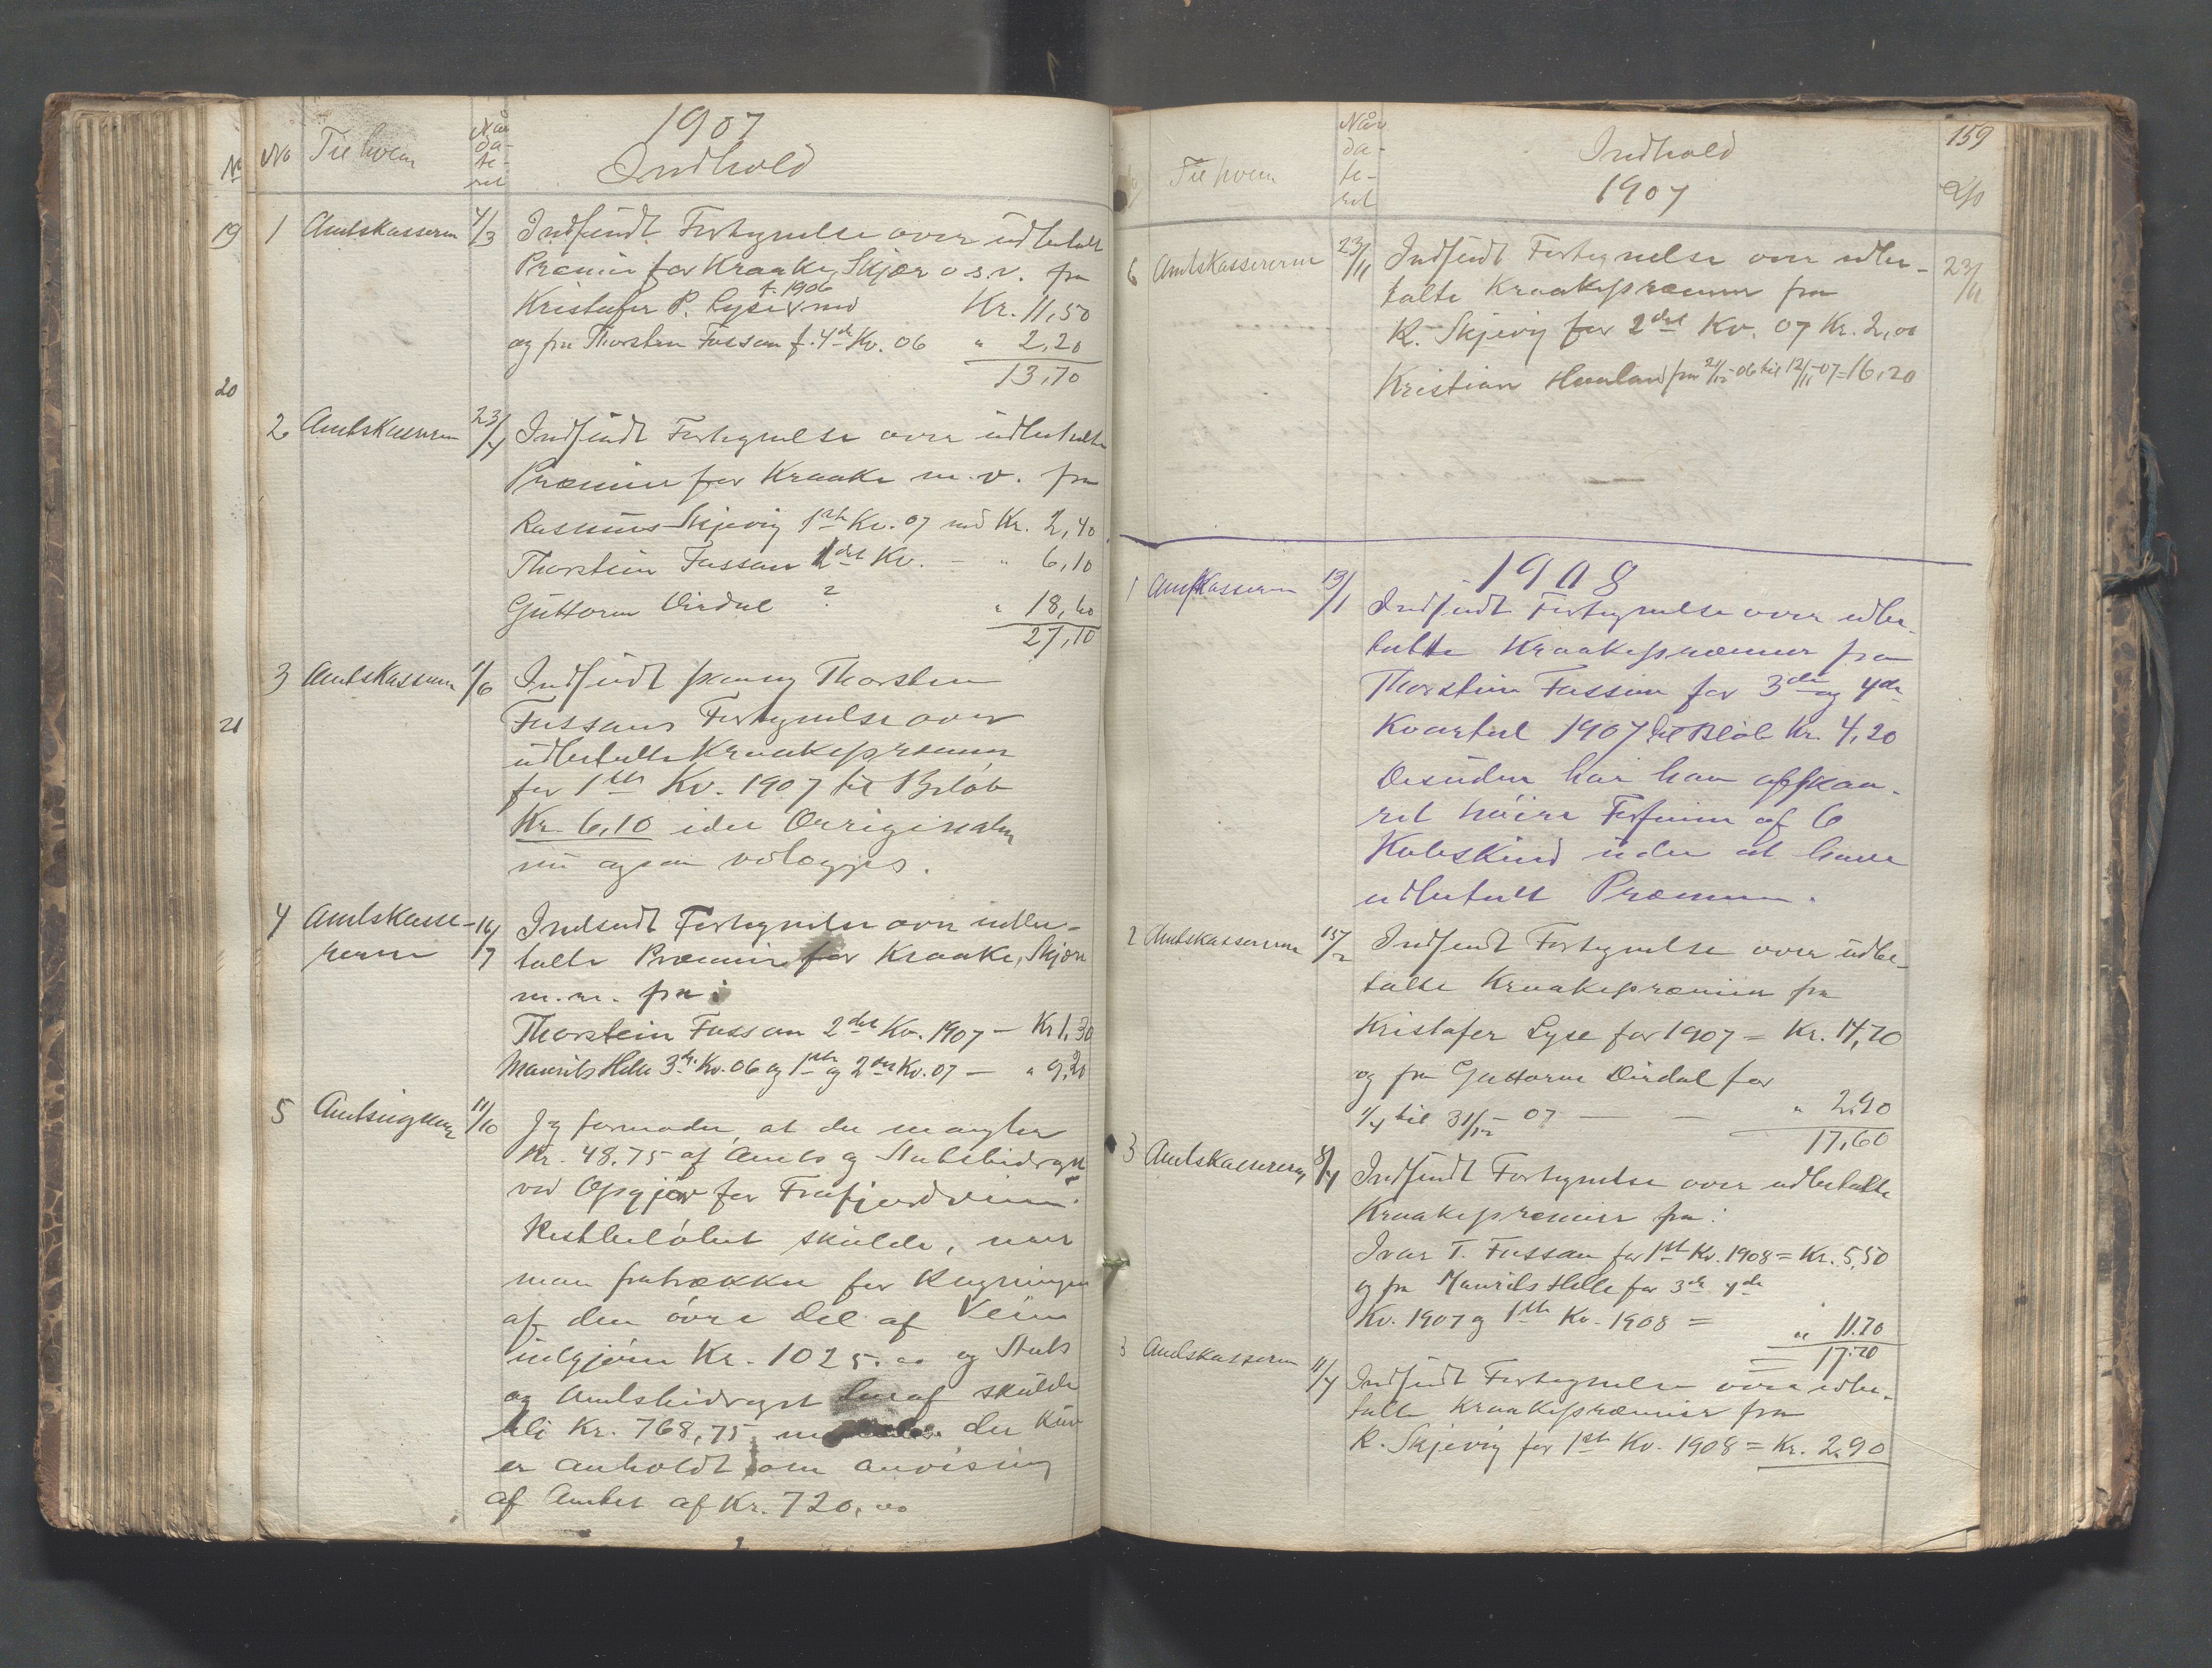 1907
No Til hvem Når da- te- ret Indhold
No
19
20
21
1 Amtskasseren 4/3 Indsendt Fortegnelse over udbetalt
Præmie for Kraake, Skjær o.s.v. fra
Kristofer P. Lyse f. 1906 med Kr. 11,50
og fra Thorsten Fossan f. 4de Kv. 06 " 2,20
13,70
2 Amtskasseren 23/4 Indsendt Fortegnelse over udbetalte
Præmier for Kraake m.v. fra
Rasmus Skjevig 1ste Kv. 07 med Kr. 2,40
Thorstein Fossan 1det Kv. - " 6,10
Guttorm Dirdal ? " 18,60
27,10
3 Amtskasseren 1/6 Indsendt Thorsten
Fossans Fortegnelse over
udbetalte Kraakepræmier
for 1ste Kv. 1907 til Beløb
Kr. 6,10 idet Originalen
nu ogsaa vedlægges.
4 Amtskasse- 16/7 Indsendt Fortegnelse over udbe-
reren talte Præmier for Kraake, Skjær
m.m. fra:
Thorstein Fossan 2det Kv. 1907 - Kr 1,30
Maurits Helle 3de Kv. 06 og 1ste og 2det Kv. 07 - " 9,20
5 Amtsingeniør 11/10 Jeg formoder, at der mangler
Kr. 48,75 af Amts og Statsbidraget
ved Opgjør for Frafjordveien.
Restbeløbet skulde, naar
man fratrækker for Rygningen
af den øvre Del af Veien
udgjøre Kr. 1025.00 og Stats
og Amtsbidraget heraf skulde
bli Kr. 768,75, der kun
er anholdt om anvisning
af Amtet af Kr. 720,00
159
Til hvem Når da- te- ret Indhold
1907
6 Amtskassereren 23/11 Indsendt Fortegnelse over udbe- 23/11
talte Kraakepræmier fra
R. Skjevig for 2det Kv. 07 Kr. 2,00
Kristian Haaland fra 21/12 06 til 12/11 07 = 16,20
1908
1 Amtskasseren 13/1 Indsendt Fortegnelse over udbe-
talte Kraakepræmier fra
Thorstein Fossan for 3de og 4de
Kvartal 1907 til Bløb Kr. 4,20
Desuden har han afskaa-
ret høire Forfinne af 6
Kobeskind uden at have
udbetalt Præmien.
2 Amtskassereren 15/2 Indsendt Fortegnelse over udbe-
talte Kraakepræmier fra
Kristofer Lyse for 1907 = Kr. 14,70
og fra Guttorm Dirdal for
1/4 til 31/12 07 - - " 2,90
17,60
3 Amtskassereren 8/4 Indsendt Fortegnelse over udbetalte
Kraakepræmier fra:
Ivar T. Fossan for 1ste Kv. 1908 = Kr. 5,50
og fra Maurits Helle for 3de 4de
Kv. 1907 og 1ste Kv. 1908 = " 11.70
17.20
3 Amtskasseren 11/4 Indsendt Fortegnelse over udbe-
talte Kraakepræmier fra
R. Skjevig for 1ste Kv. 1908 = Kr. 2,90